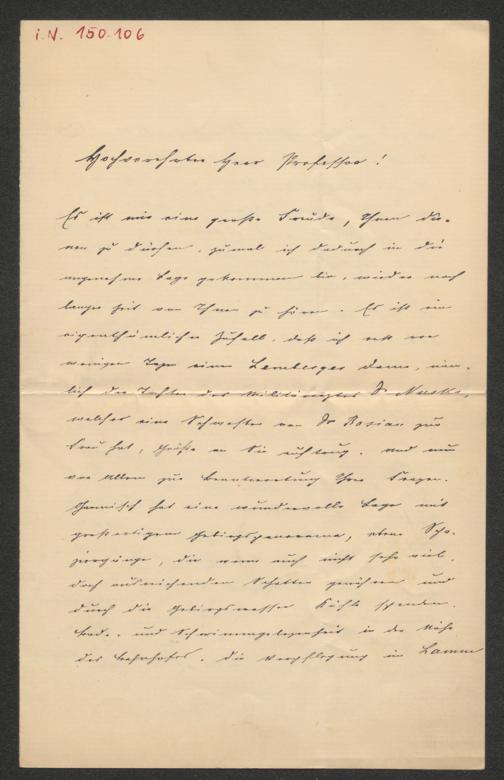 i.N. 150.106
Hochverehrter Herr Professor!
Es ist mir eine große Freude, Ihnen die-
nen zu dürfen, zumal ich dadurch in die
angenehme Lage gekommen bin, wieder nach
langer Zeit von Ihnen zu hören. Es ist ein
eigenthümlicher Zufall, daß ich erst vor
wenigen Tagen einer Lemberger Dame, näm-
lich der Tochter des Militärarztes Dr
welcher eine Schwester von Dr Rosian zur
Frau hat, Grüße an Sie auftrug. Und nun
vor allem zur Beantwortung Ihrer Fragen.
hat eine wundervolle Lage mit
großartigem Gebirgspanorama, ebene Spa-
ziergänge, die wenn auch nicht sehr viel,
doch ausreichenden Schatten gewähren und
durch die Gebirgswasser Kühle spenden.
Bade- und Schwimmgelegenheit in der Nähe
des Bahnhofes. Die Verpflegung im Lamm